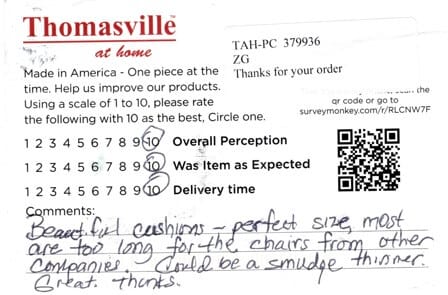 Thomasville
at home
TAH-PC 379936
ZG
Thanks for your order
Made in America - One piece at the
time. Help us improve our products.
Using a scale of 1 to 10, please rate
the following with 10 as the best, Circle one.
the
qr code or go to
surveymonkey.com/r/RLCNW7F
1 2 3 4 5 6 7 8 9 10 Overall Perception
1 2 3 4 5 6 7 8 9 10 Was Item as Expected
1 2 3 4 5 6 7 8 9 10 Delivery time
Comments:
Beautiful cushions - perfect size, most
are too long for the chairs from other
companies. Could be a smudge thinner.
Great. Thanks.